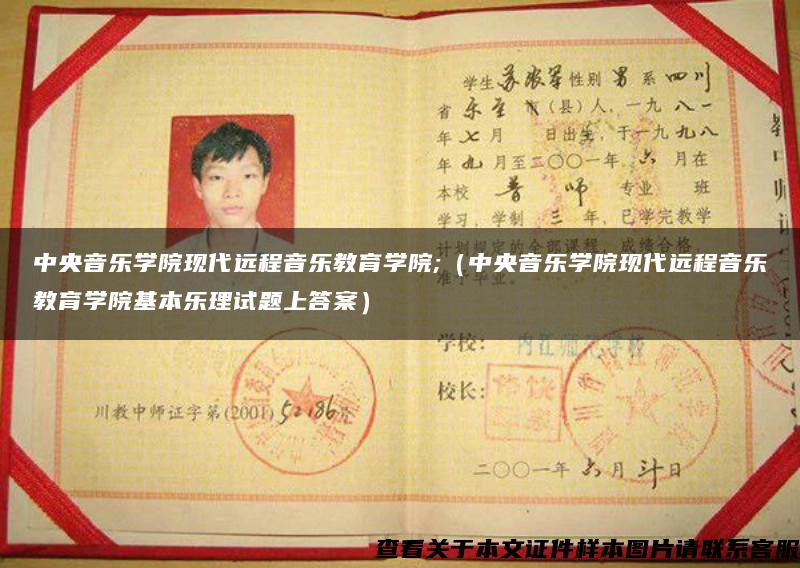 学生 苏 军 性别 男 系 四川
省 乐至 市（县）人，一九 八一
年 七 月 日出生，于一九 九八
年 九 月至二〇〇一年 六 月在
本校 普 师 专业 班
学习，学制 三 年，已学完教学
计划规定的全部课程，成绩合格，
准予毕业。
中央音乐学院现代远程音乐教育学院;（中央音乐学院现代远程音乐
教育学院基本乐理试题上答案）
学校： 内江师范学校
校长：
川教中师证字第(2001) 52186 号
二〇〇一年 六 月 日
查看关于本文证件样本图片请联系客服